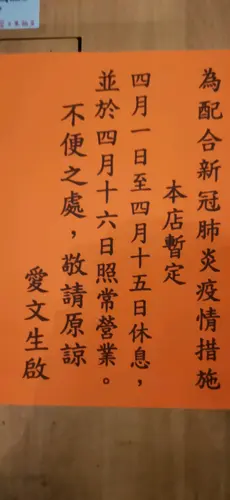 為配合新冠肺炎疫情措施
本店暫定
四月一日至四月十五日休息，
並於四月十六日照常營業。
不便之處，敬請原諒
愛文生啟